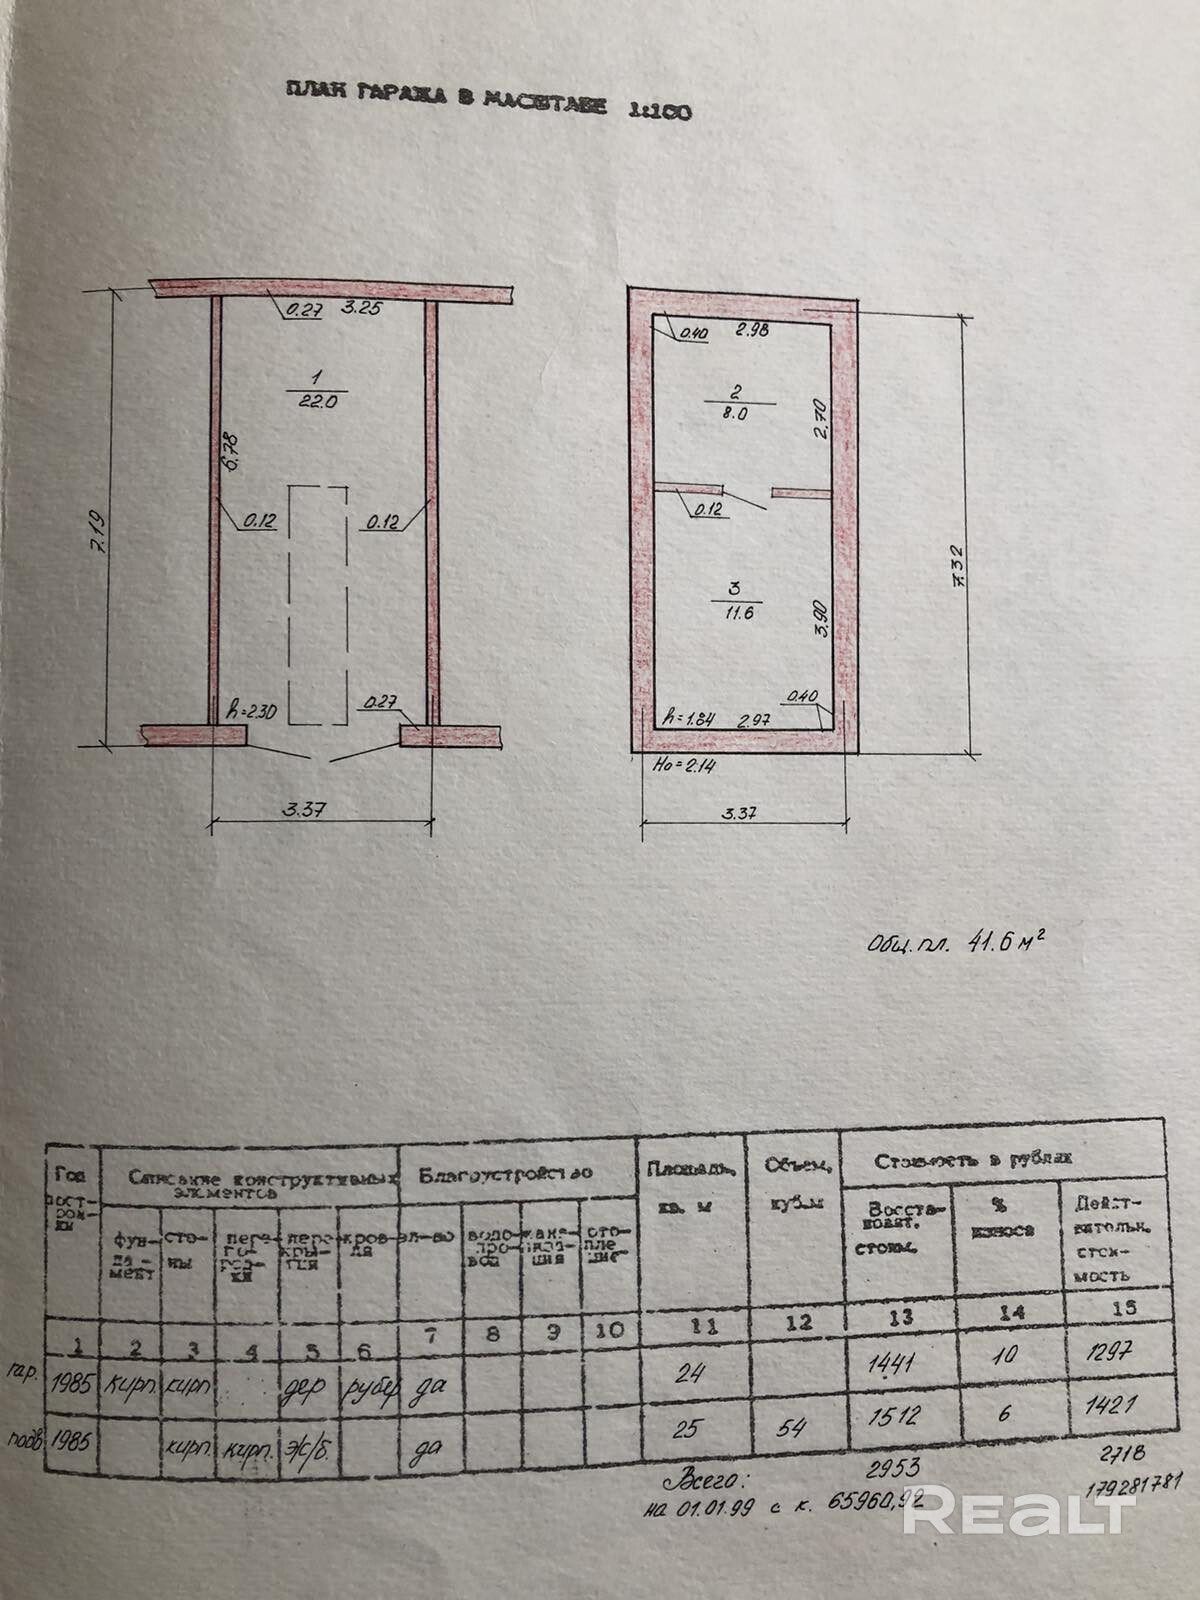 ПЛАН ГАРАЖА В МАСШТАБЕ 1:100
0.27 3.25
0.40 2.98
1
22.0
2
8.0
2.70
6.78
0.12
0.12
0.12
7.19
7.32
3
11.6
3.90
h=2.30
0.27
0.40
h=1.84 2.97
Но=2.14
3.37
3.37
Общ. пл. 41.6 м²
Год пост-рой-ки
Описание конструктивных элементов
Благоустройство
Площадь, кв. м
Объем, куб.м
Стоимость в рублях
фун-да-мент
сте-ны
пере-го-род-ки
пере-кры-тия
кров-ля
эл-во
водо-про-вод
кана-лиза-ция
ото-пле-ние
Восста-новит. стоим.
% износа
Дейст-вительн. стои-мость
1 2 3 4 5 6 7 8 9 10 11 12 13 14 15
гар. 1985 кирп. кирп дер рубер да 24 1441 10 1297
подв 1985 кирп. кирп. ж/б. да 25 54 1512 6 1421
Всего: 2953 2718
на 01.01.99 с к. 65960,92 179281781
REALT